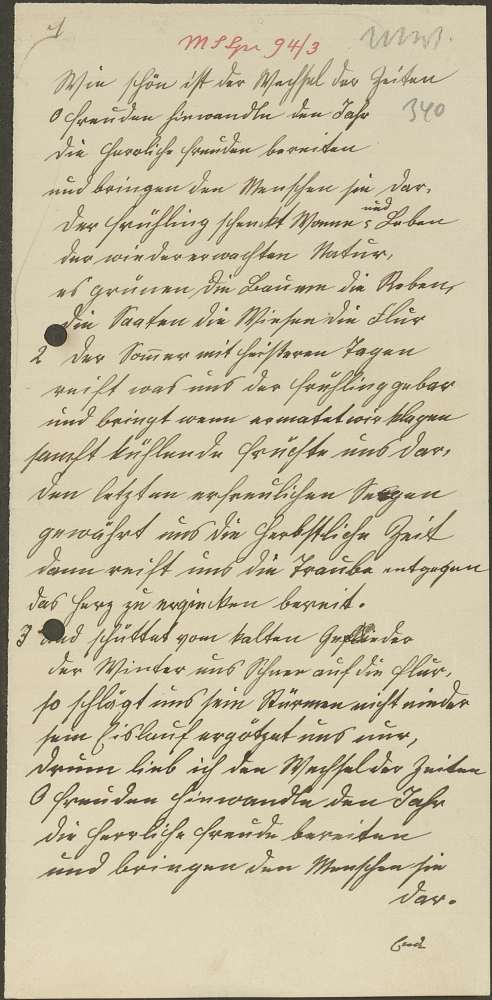 1
MS Spr 94/3
340
Wie schön ist der Wechsel der Zeiten
O Freuden hinwandle den Jahr
die herrliche Freuden bereiten
und bringen den Menschen sie dar,
der Frühling schenckt Wonne und Leben
der wiedererwachten Natur,
es grünen die Bäume die Reben,
die Saaten die Wiesen die Flur
2 der Somer mit heisteren Tagen
reift was uns der Frühling gebar
und bringt wenn ermatet wir klagen
sanft kühlende Früchte uns dar,
den letzten erfreulichen Segen
gewährt uns die herbstliche Zeit
dann reift uns die Traube entgegen
das Herz zu erquicken bereit.
3 und schüttet vom kalten Gefieder
der Winter uns Schnee auf die Flur,
so schlägt uns sein Stürmen nicht nieder
sein Eislauf ergötzet uns nur,
drum lieb ich den Wechsel der Zeiten
O Freuden hinwandle den Jahr
die herrliche Freude bereiten
und bringen den Menschen sie
dar.
End